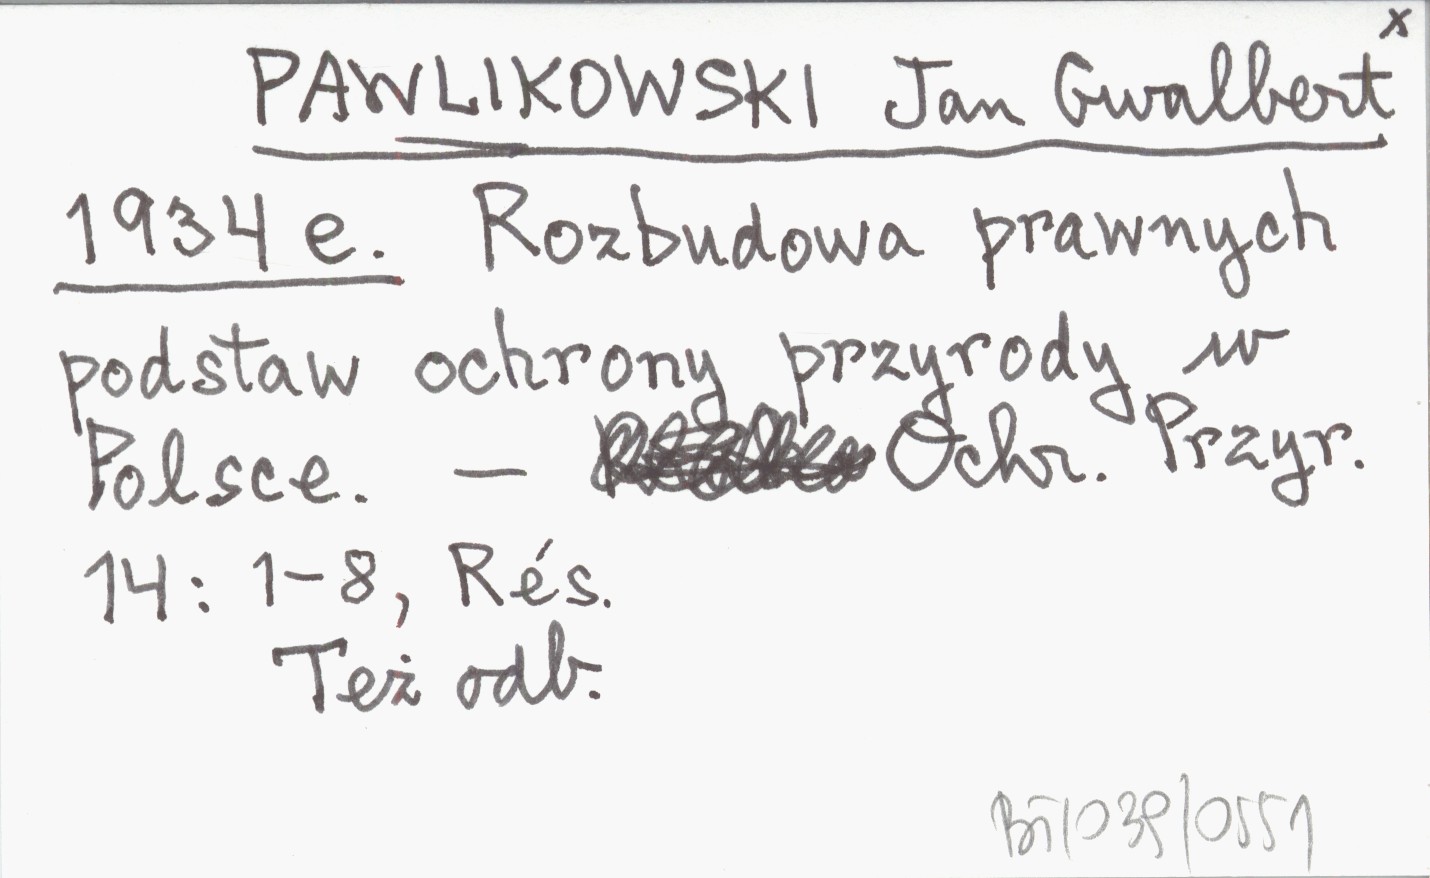 x
PAWLIKOWSKI Jan Gwalbert
1934 e. Rozbudowa prawnych
podstaw ochrony przyrody w
Polsce. — Ochr. Przyr.
14: 1-8, Rés.
Też odb.
/039/0551